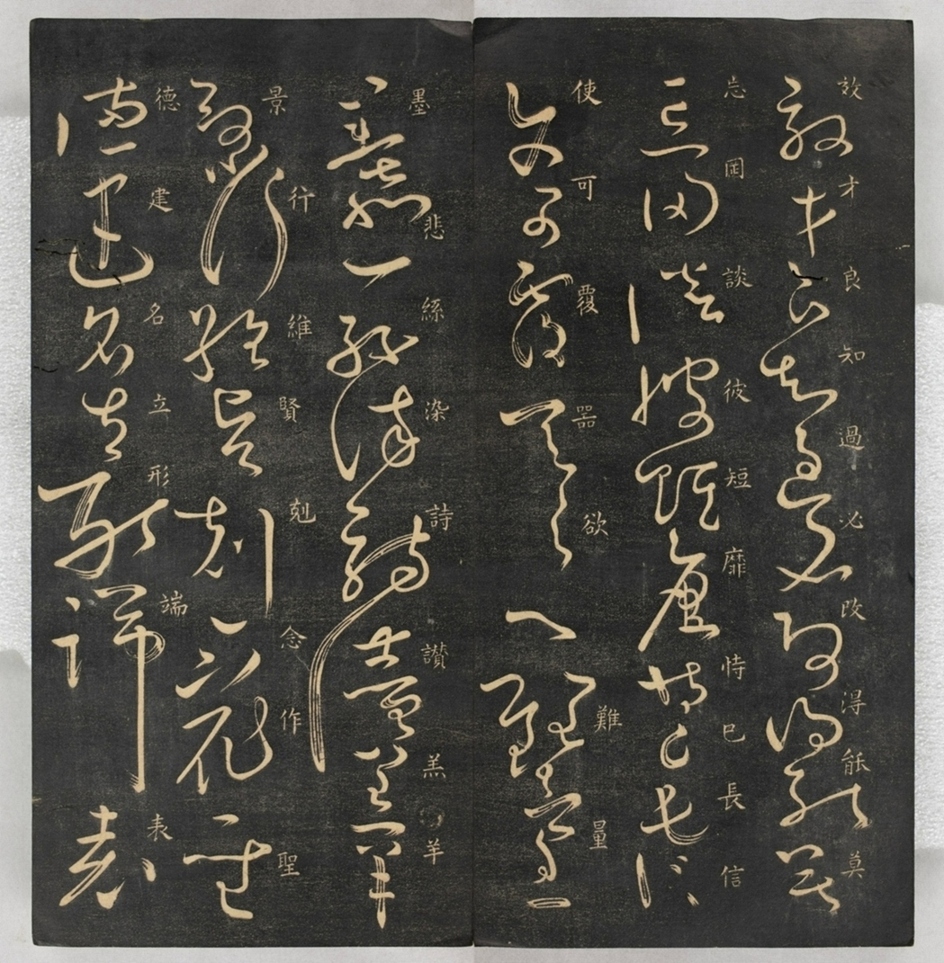 效才良知過必改得能莫
忘罔談彼短靡恃己長信
使可覆器欲難量
墨悲絲染詩讚羔羊
景行維賢剋念作聖
德建名立形端表